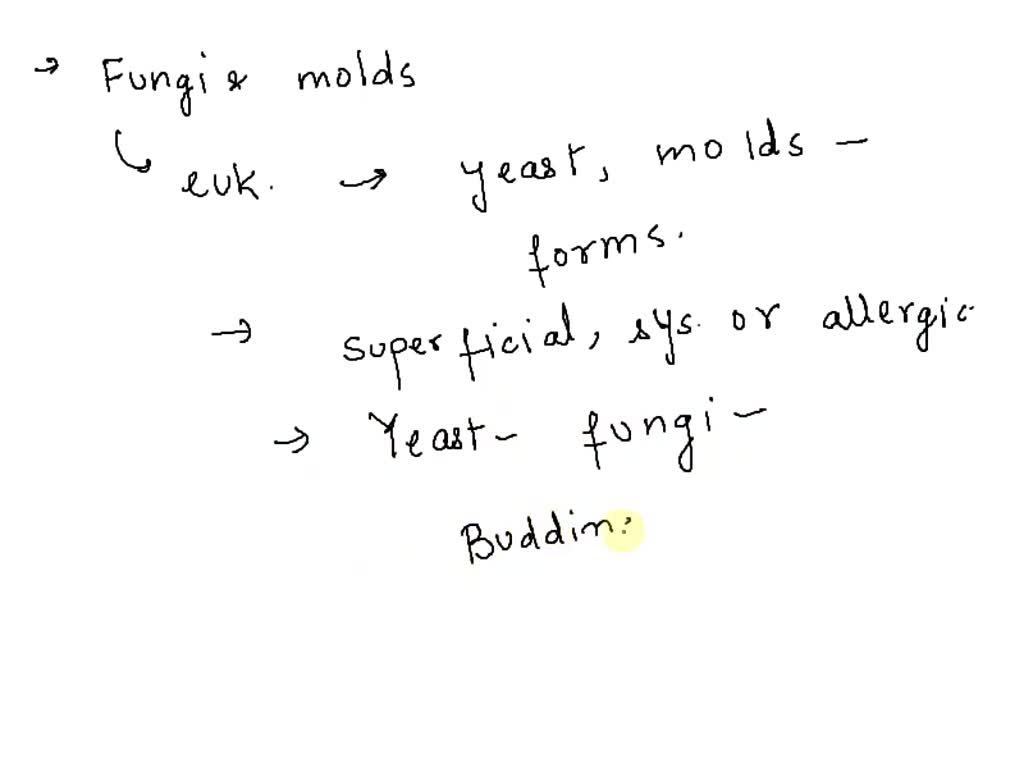 → Fungi & molds
↳ euk. → yeast, molds –
forms.
→ superficial, sys. or allergic
→ Yeast – fungi –
Buddin